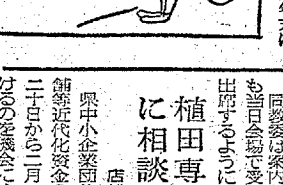 同教委は案内
も当日会場で受
出席するように
植田専
に相談
店
県中小企業団
舗等近代化資金
二十日から二月
けるのを機会に